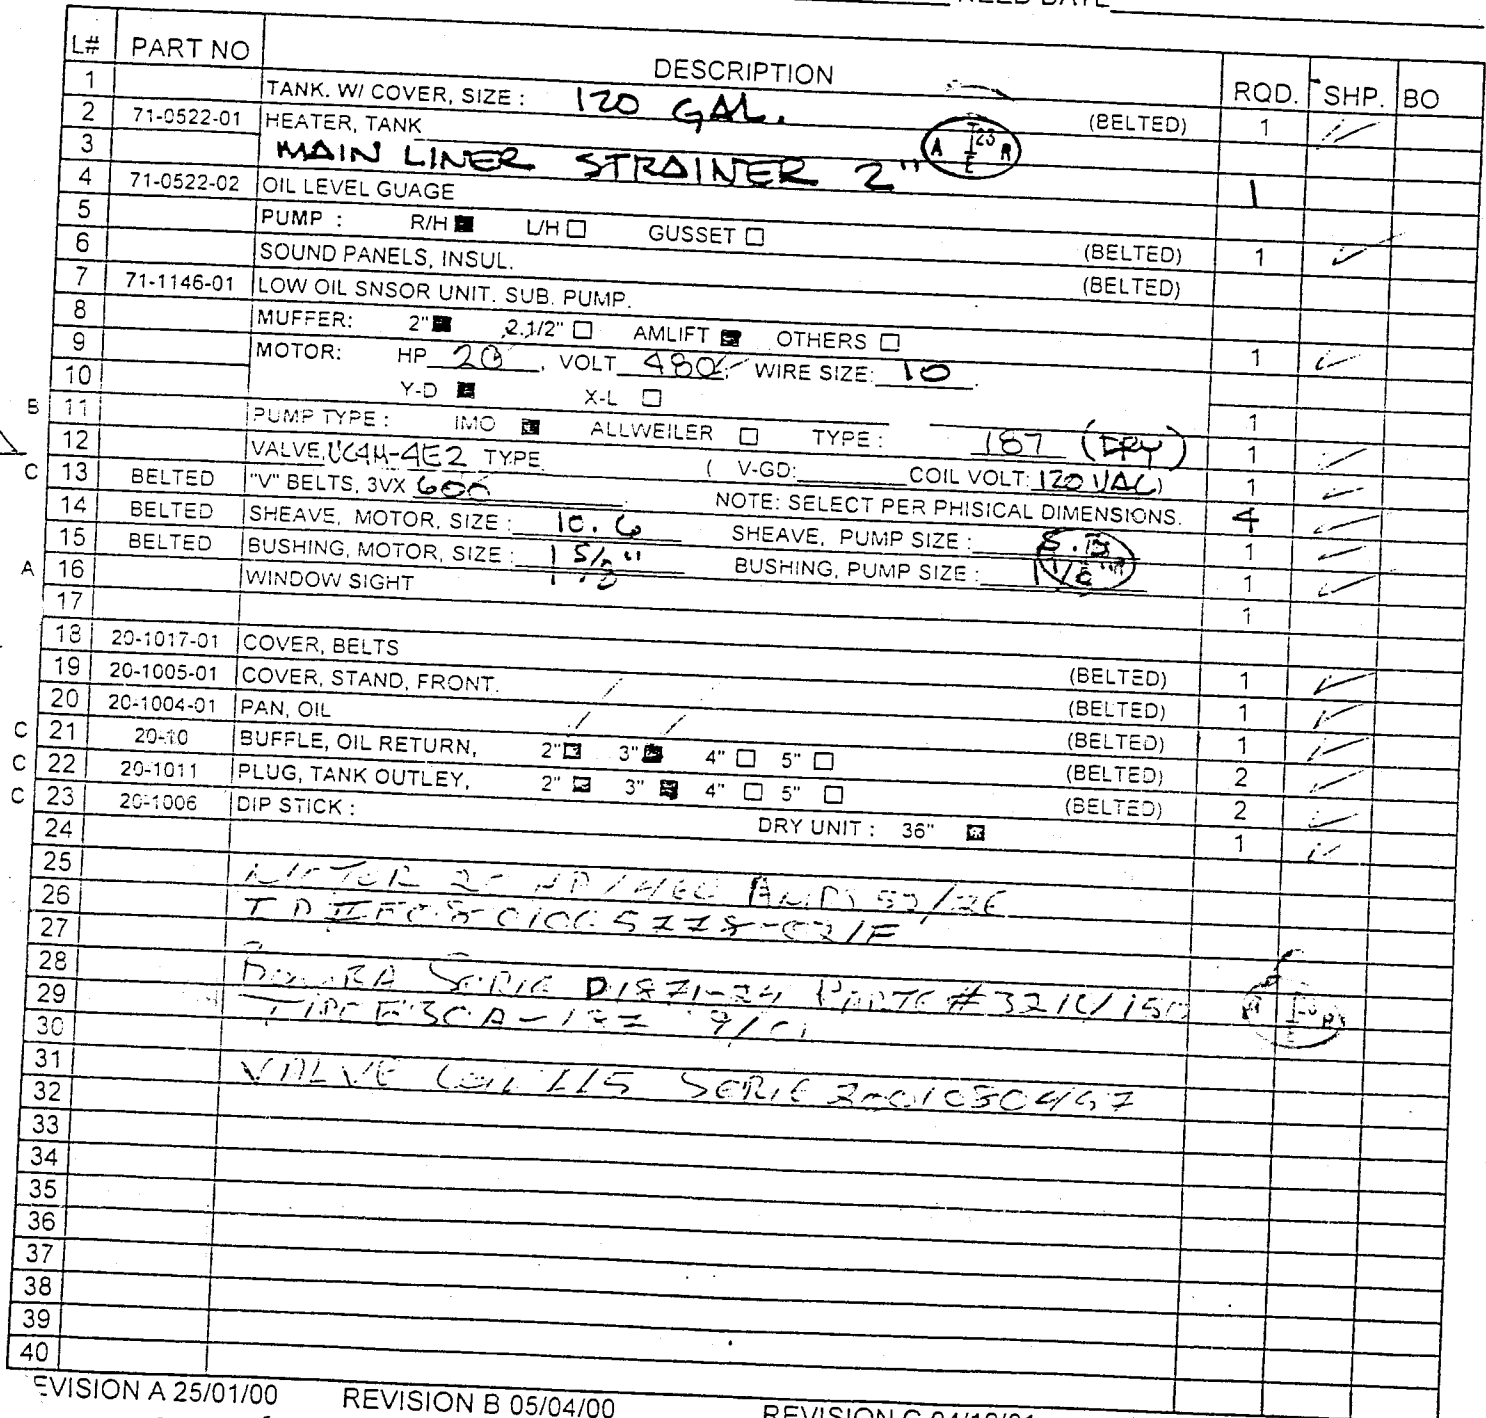 NEED DATE
L# PART NO DESCRIPTION RQD. SHP. BO
1 TANK. W/ COVER, SIZE : 120 GAL. (BELTED) 1
2 71-0522-01 HEATER, TANK
3 MAIN LINER STRAINER 2" 1
4 71-0522-02 OIL LEVEL GUAGE
5 PUMP : R/H L/H GUSSET (BELTED) 1
6 SOUND PANELS, INSUL. (BELTED)
7 71-1146-01 LOW OIL SNSOR UNIT. SUB. PUMP.
8 MUFFER: 2" 2.1/2" AMLIFT OTHERS 1
9 MOTOR: HP 20, VOLT 480, WIRE SIZE: 10
10 Y-D X-L 1
B 11 PUMP TYPE : IMO ALLWEILER TYPE : 187 (DRY) 1
12 VALVE, UC4M-4E2 TYPE ( V-GD: COIL VOLT: 120 VAC) 1
C 13 BELTED "V" BELTS, 3VX 600 NOTE: SELECT PER PHISICAL DIMENSIONS. 4
14 BELTED SHEAVE, MOTOR, SIZE : 10.6 SHEAVE, PUMP SIZE : 1
15 BELTED BUSHING, MOTOR, SIZE : 1 5/8" BUSHING, PUMP SIZE : 1 1/8" 1
A 16 WINDOW SIGHT 1
17
18 20-1017-01 COVER, BELTS (BELTED) 1
19 20-1005-01 COVER, STAND, FRONT. (BELTED) 1
20 20-1004-01 PAN, OIL (BELTED) 1
C 21 20-10 BUFFLE, OIL RETURN, 2" 3" 4" 5" (BELTED) 2
C 22 20-1011 PLUG, TANK OUTLEY, 2" 3" 4" 5" (BELTED) 2
C 23 20-1006 DIP STICK : DRY UNIT : 36" 1
24
25 MOTOR
26
27
28 SERIE PARTE #
29
30
31 VALVE COIL 115 SERIE
32
33
34
35
36
37
38
39
40
EVISION A 25/01/00 REVISION B 05/04/00